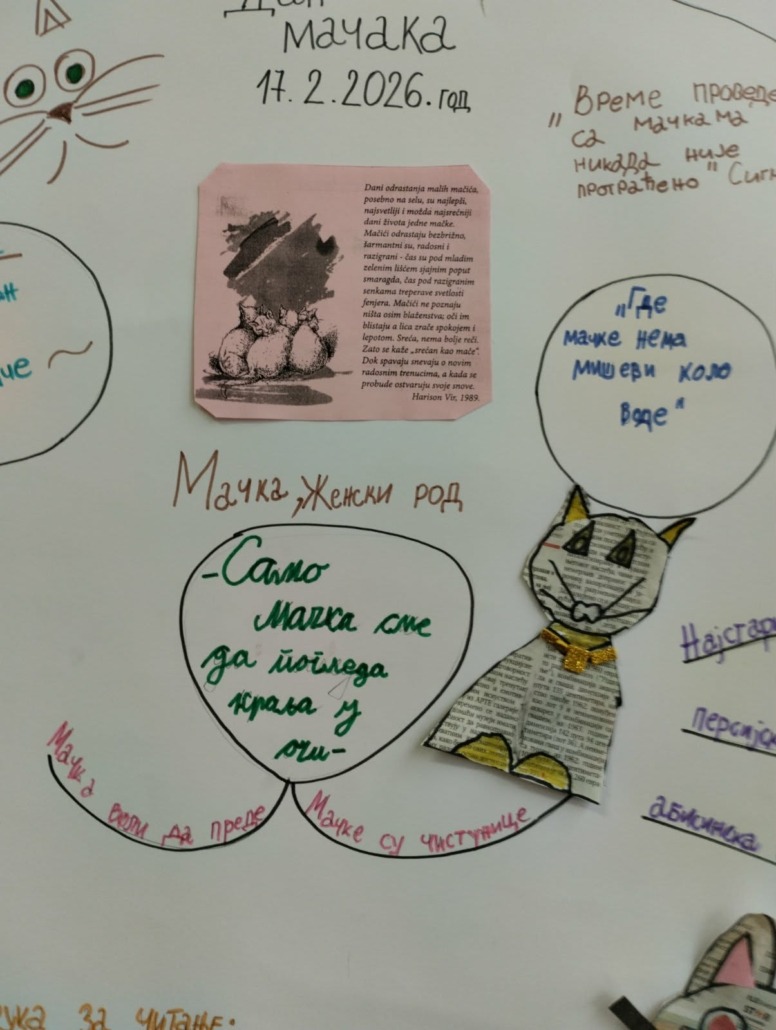 Дан
мачака
17.2.2026.год
"Време
са мачкама
никада није
потраћено"
Dani odrastanja malih mačića,
posebno na selu, su najlepši,
najsvetliji i možda najsrećniji
dani života jedne mačke.
Mačići odrastaju bezbrižno,
šarmantni su, radosni i
razigrani - čas su pod mladim
zelenim lišćem sjajnim poput
smaragda, čas pod razigranim
senkama treperave svetlosti
fenjera. Mačići ne poznaju
ništa osim blaženstva; oči im
blistaju a lica zrače spokojem i
lepotom. Sreća, nema bolje reči.
Zato se kaže „srećan kao mače".
Dok spavaju snevaju o novim
radosnim trenucima, a kada se
probude ostvaruju svoje snove.
Harison Vir, 1989.
„Где
мачке нема
мишеви коло
воде"
Мачка, женски род
-Само
мачка сме
да погледа
краља у
очи-
Мачка воли да преде
Мачке су чистунице
абисинска
за читање.